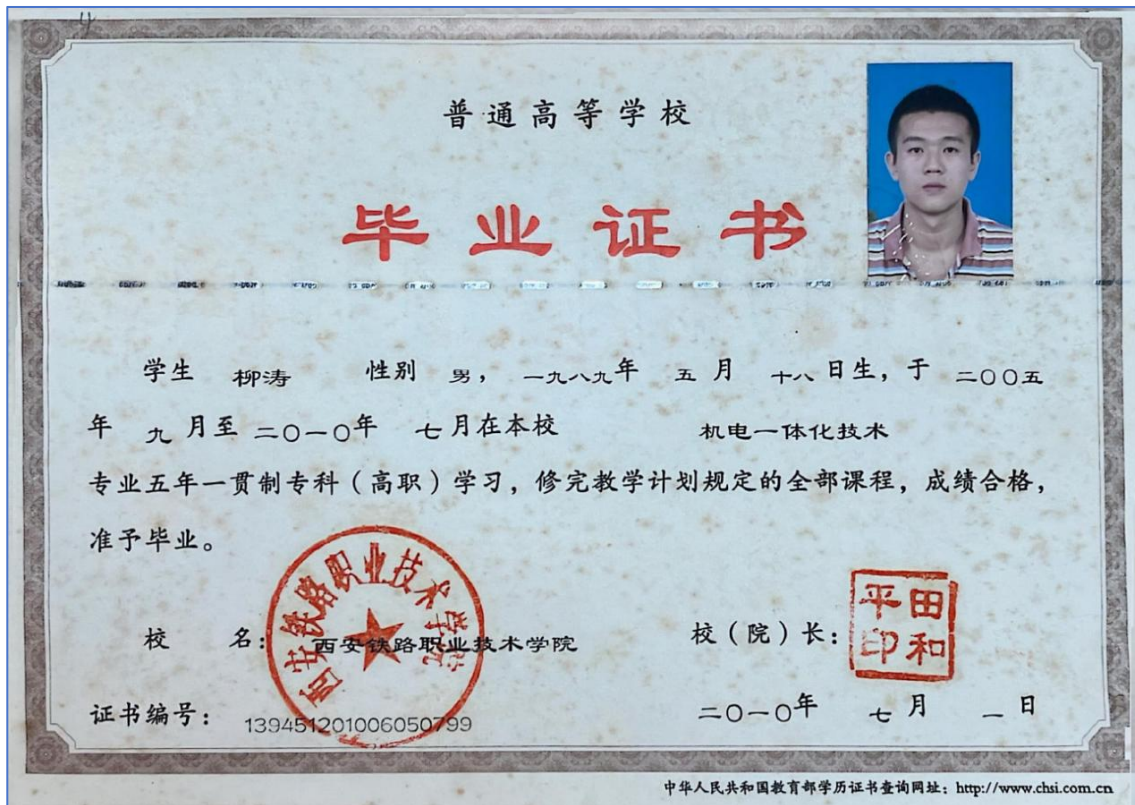 4
普通高等学校
毕业证书
学生 柳涛 性别 男，一九八九年 五 月 十八 日生，于 二〇〇五
年 九 月至 二〇一〇年 七 月在本校 机电一体化技术
专业五年一贯制专科（高职）学习，修完教学计划规定的全部课程，成绩合格，
准予毕业。
西安铁路职业技术学院
校 名：西安铁路职业技术学院 校（院）长：
田和平印
证书编号：139451201006050799 二〇一〇年 七 月 一 日
中华人民共和国教育部学历证书查询网址：http://www.chsi.com.cn